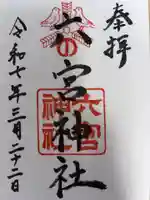 奉拝
六宮神社
六宮
神社
令和七年三月二十二日